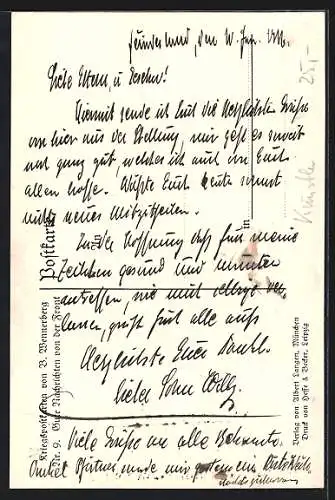 Feindesland, den 10. Jan. 1916.
Liebe Eltern, u. Geschw!
Hiermit sende ich Euch die herzlichsten Grüße
von hier aus der Stellung, mir geht es soweit
noch ganz gut, welches ich auch von Euch
allen hoffe. Wüßte Euch heute sonst
nichts neues Mitzuteilen.
In der Hoffnung daß Euch meine
Zeilen gesund und munter
antreffen, wie mich selbige ver-
lassen, grüßt Euch alle aufs
Herzlichste Euer Dankb.
lieber Sohn Willy.
Viele Grüße an alle Bekannte.
Onkel
25,-
Künstler
Postkarte
in
Kriegspostkarten von B. Wennerberg
Nr. 9. Gute Nachrichten von der Front
Verlag von Albert Langen, München
Druck von Hesse & Becker, Leipzig